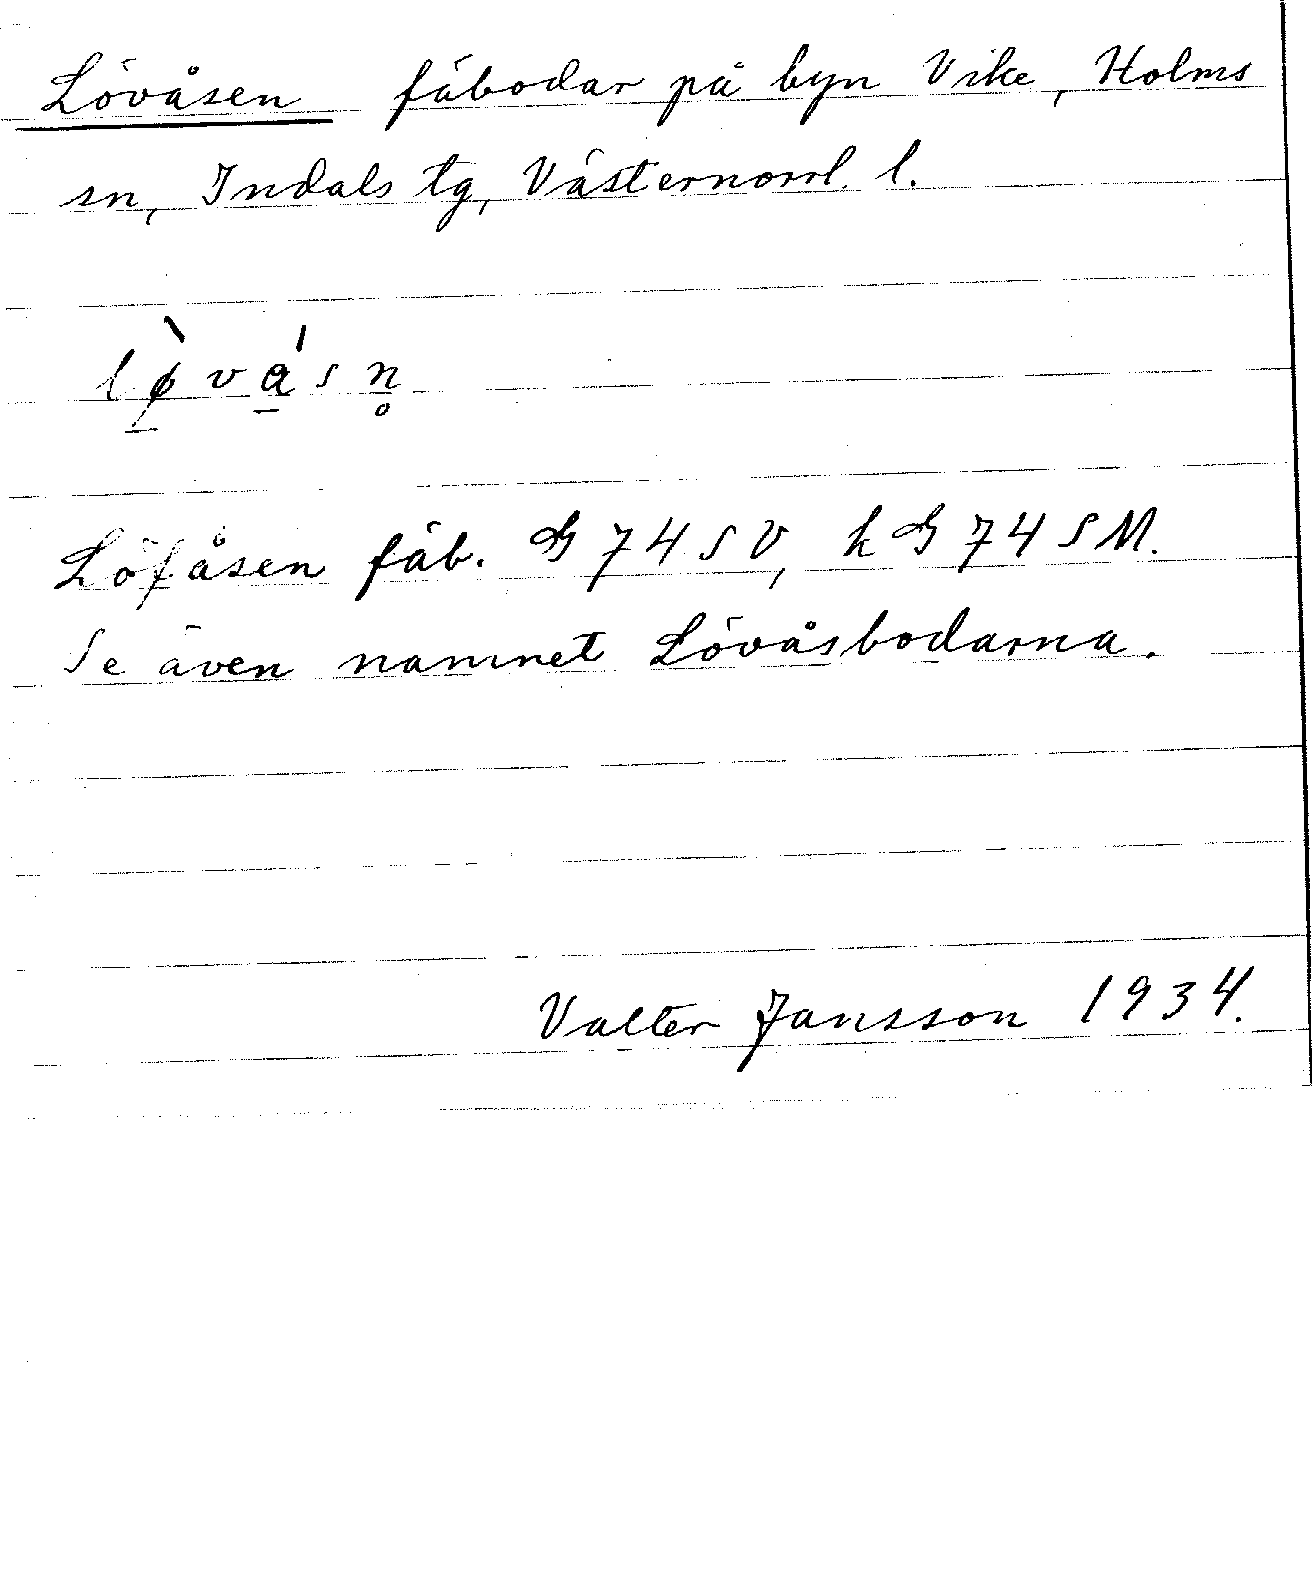 Lövåsen fäbodar på byn Vike, Holms
sn, Indals tg, Västernorrl. l.
lø̀vás n̥
Löfåsen fäb. G 74 SV, k G 74 SM.
Se även namnet Lövåsbodarna.
Valter Jansson 1934.